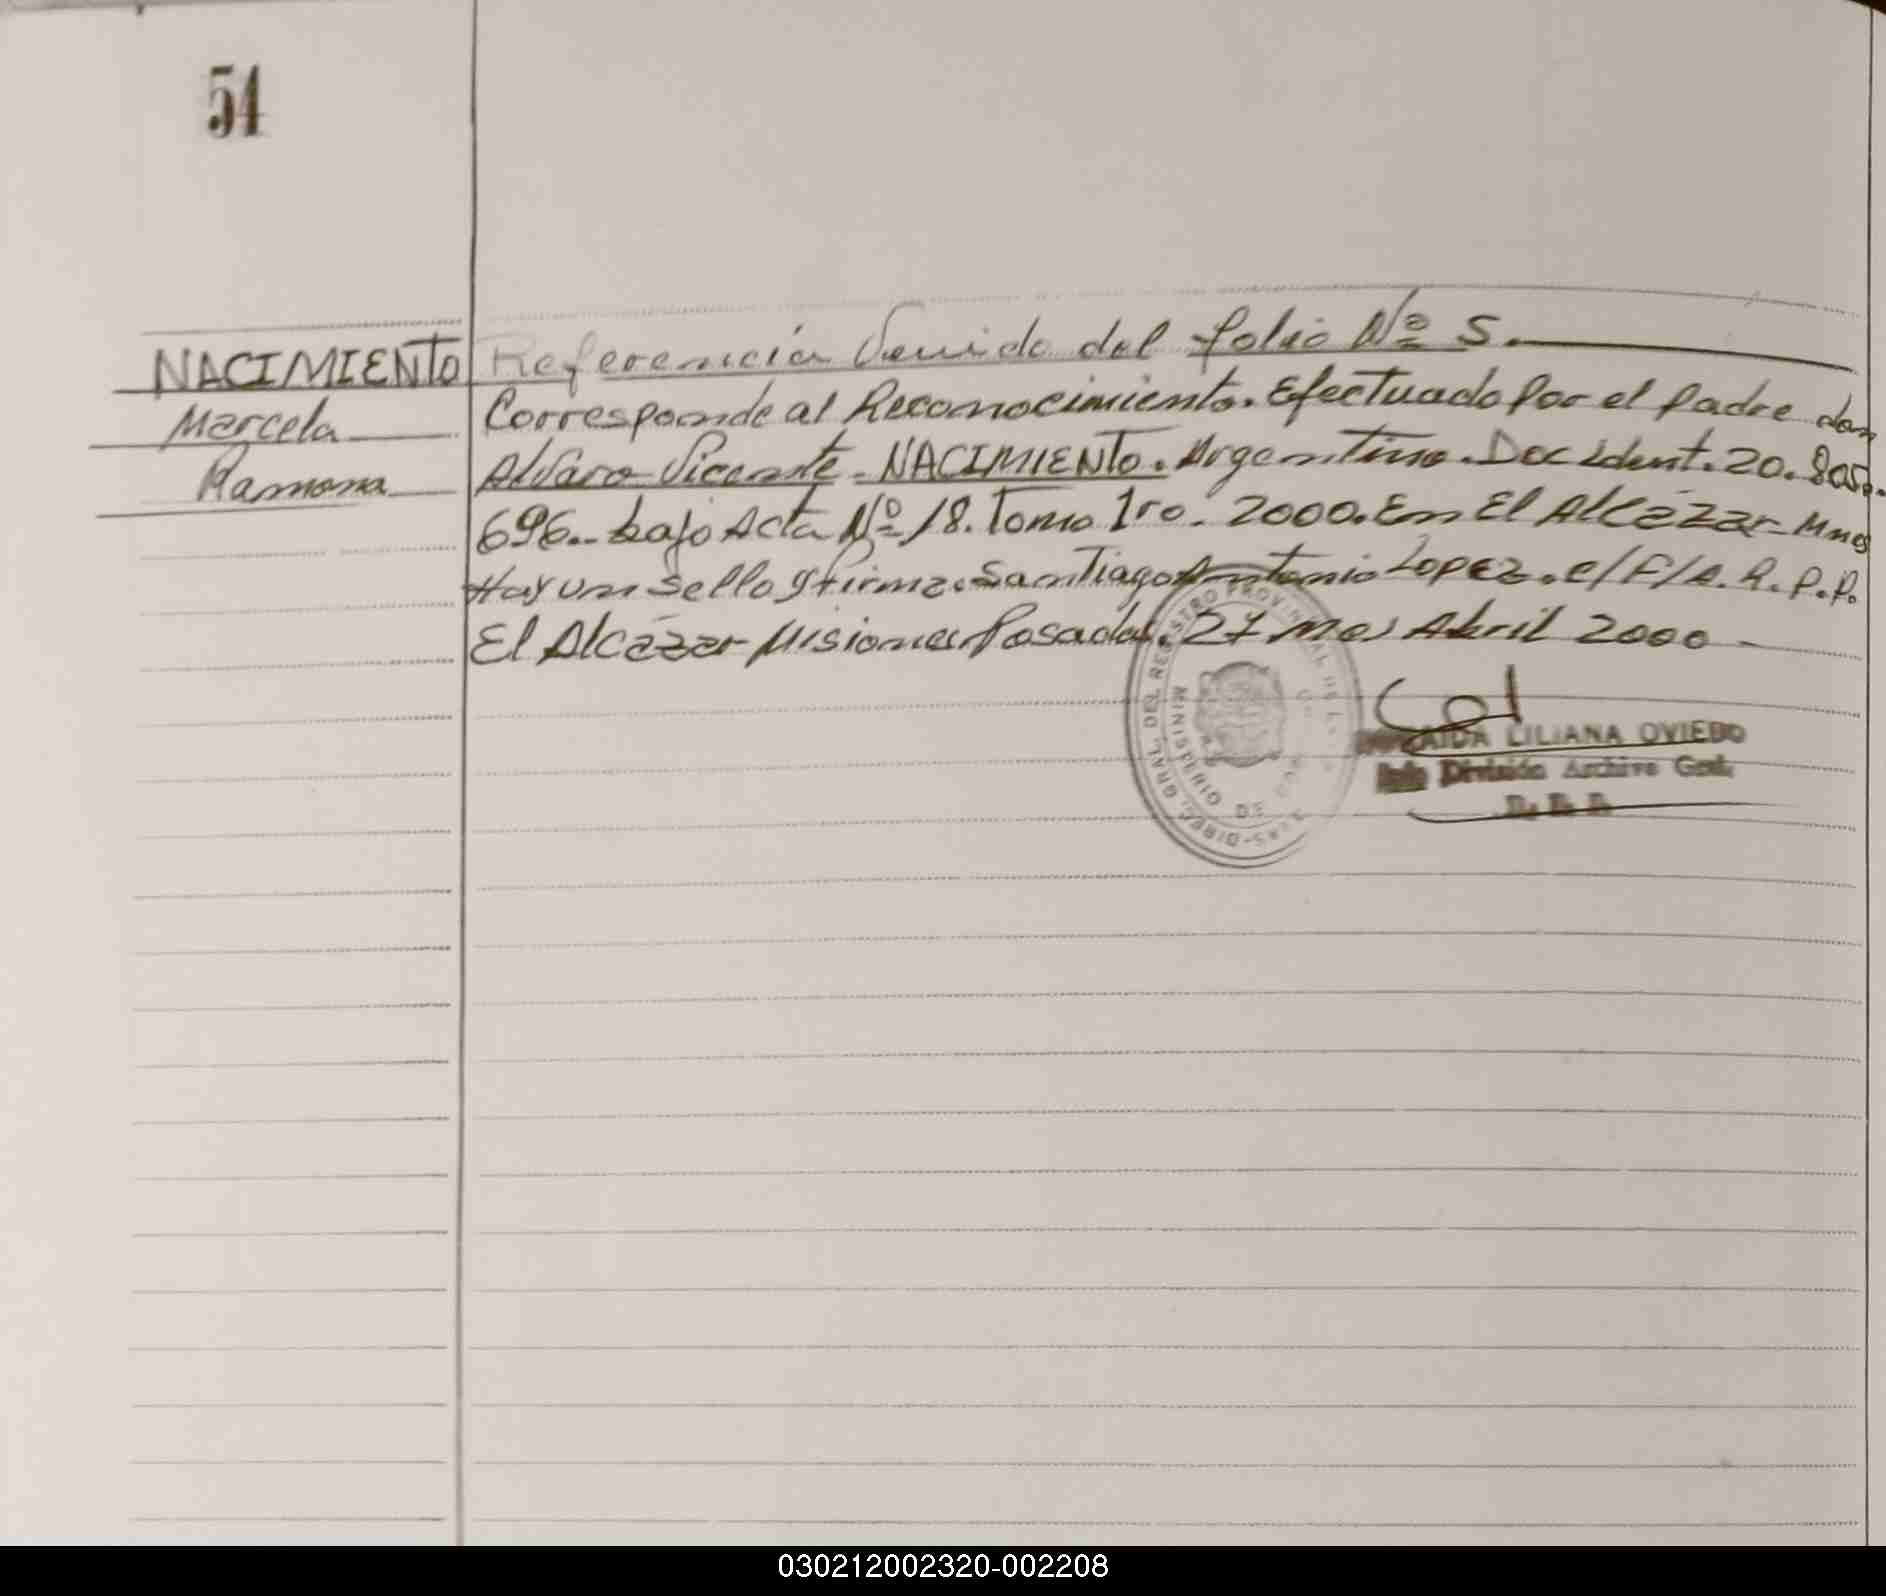 54
NACIMIENTO
Marcela
Ramona
Referencia Venido del folio Nº 5.
Corresponde al Reconocimiento. Efectuado Por el Padre don
Alvaro Vicente - NACIMIENTO. Argentino. Doc Ident. 20.805.
696.- bajo Acta Nº 18. Tomo 1ro. 2000. En El Alcázar - Mnes
Hay um sello y firma. Santiago Antonio Lopez. e/F/A.R.P.P.
El Alcázar - Misiones Posadas. 27 mes Abril 2000
LILIANA OVIEDO
División Archivo Gral.
GRAL. DEL REGISTRO PROVINCIAL DE
030212002320-002208